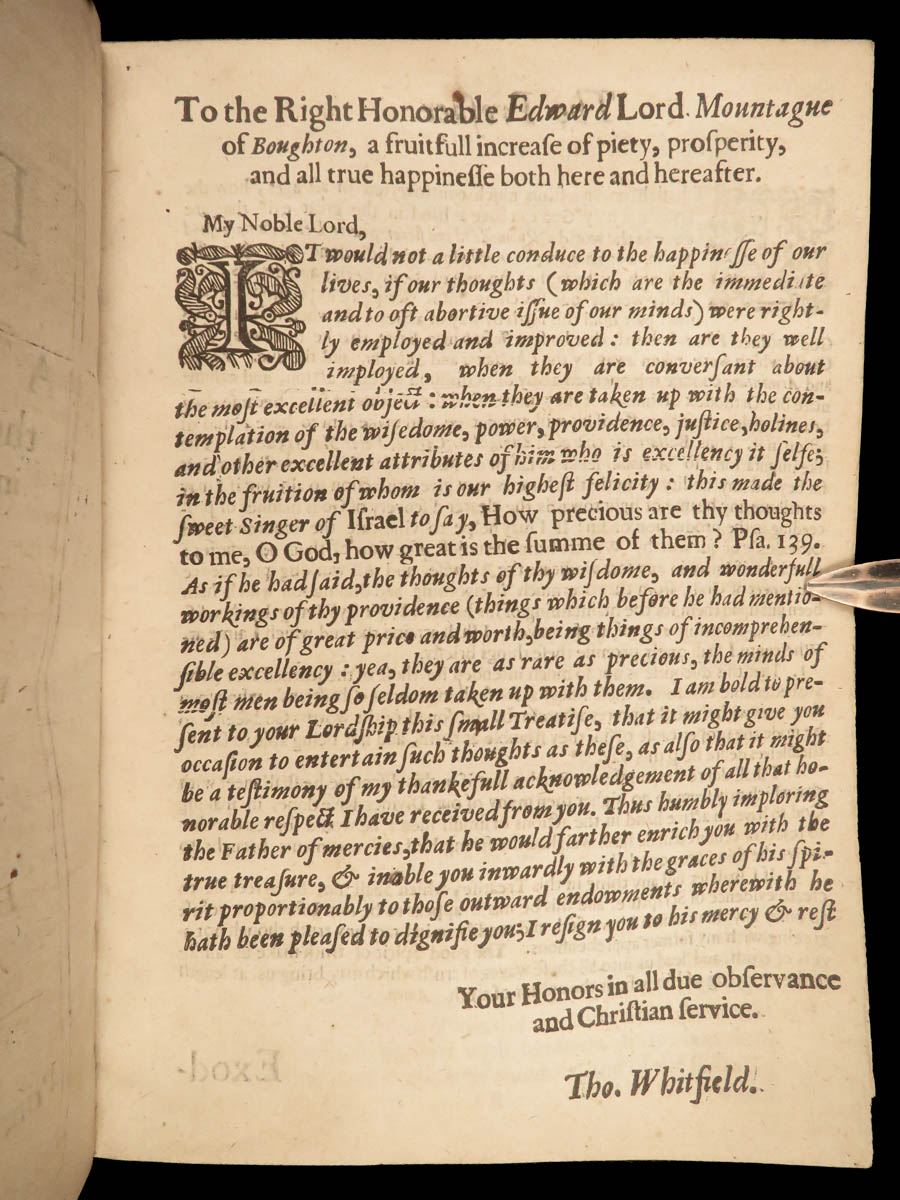 To the Right Honorable Edward Lord Mountague
of Boughton, a fruitfull increaſe of piety, proſperity,
and all true happineſſe both here and hereafter.
My Noble Lord,
IT would not a little conduce to the happineſſe of our
lives, if our thoughts (which are the immediate
and to oft abortive iſſue of our minds) were right-
ly employed and improved : then are they well
imployed, when they are converſant about
the moſt excellent object : when they are taken up with the con-
templation of the wiſedome, power, providence, juſtice, holines,
and other excellent attributes of him who is excellency it ſelfe;
in the fruition of whom is our higheſt felicity : this made the
ſweet Singer of Iſrael to ſay, How precious are thy thoughts
to me, O God, how great is the ſumme of them ? Pſa. 139.
As if he had ſaid, the thoughts of thy wiſdome, and wonderfull
workings of thy providence (things which before he had mentio-
ned) are of great price and worth, being things of incomprehen-
ſible excellency : yea, they are as rare as precious, the minds of
moſt men being ſo ſeldom taken up with them. I am bold to pre-
ſent to your Lordſhip this ſmall Treatiſe, that it might give you
occaſion to entertain ſuch thoughts as theſe, as alſo that it might
be a teſtimony of my thankefull acknowledgement of all that ho-
norable reſpect I have received from you. Thus humbly imploring
the Father of mercies, that he would farther enrich you with the
true treaſure, & inable you inwardly with the graces of his ſpi-
rit proportionably to thoſe outward endowments wherewith he
hath been pleaſed to dignifie you; I reſign you to his mercy & reſt
Your Honors in all due obſervance
and Chriſtian ſervice.
Tho. Whitfield.